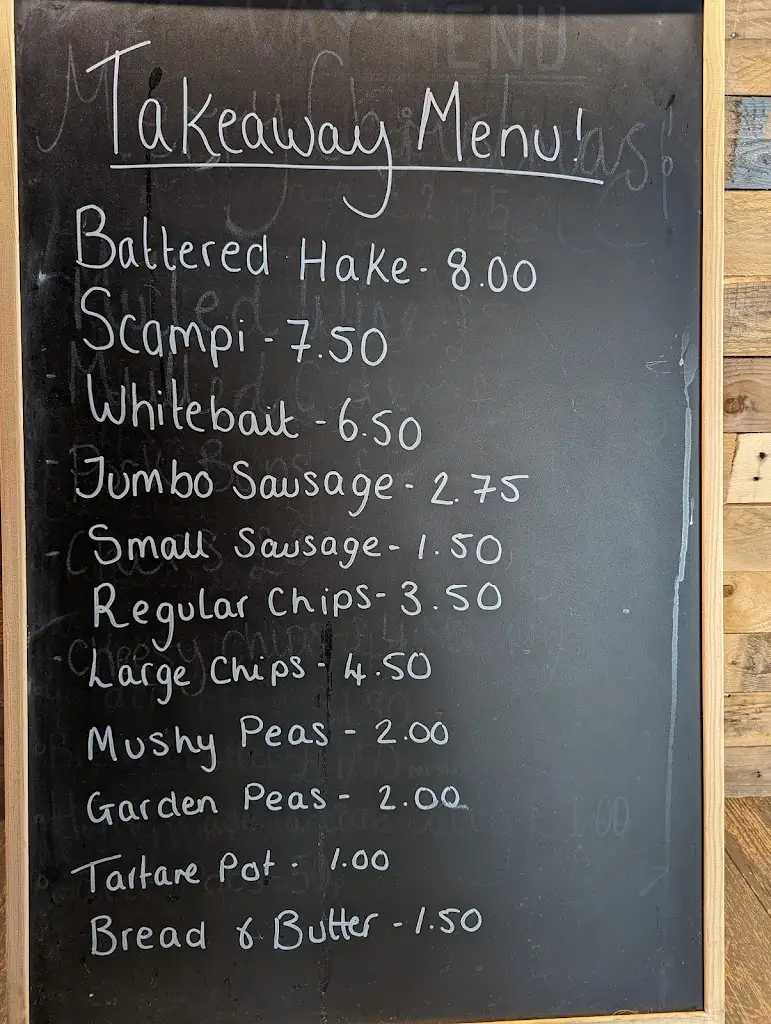 Takeaway Menu!
Battered Hake - 8.00
Scampi - 7.50
Whitebait - 6.50
Jumbo Sausage - 2.75
Small Sausage - 1.50
Regular Chips - 3.50
Large Chips - 4.50
Mushy Peas - 2.00
Garden Peas - 2.00
Tartare Pot - 1.00
Bread & Butter - 1.50